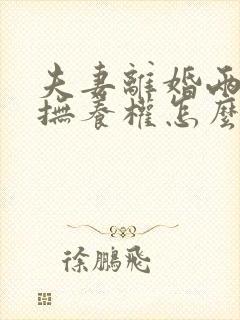 夫妻離婚兩
撫養權怎麼
徐鵬飛